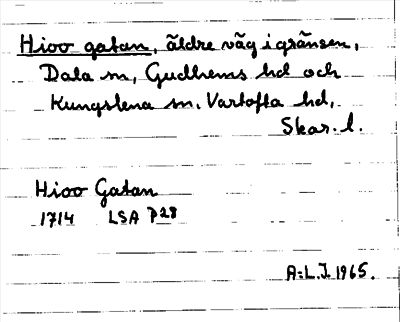 Hioo gatan, äldre väg i gränsen,
Dala sn, Gudhems hd och
Kungslena sn. Vartofta hd,
Skar. l.
Hioo Gatan
1714 LSA P28
A.L.J. 1965.